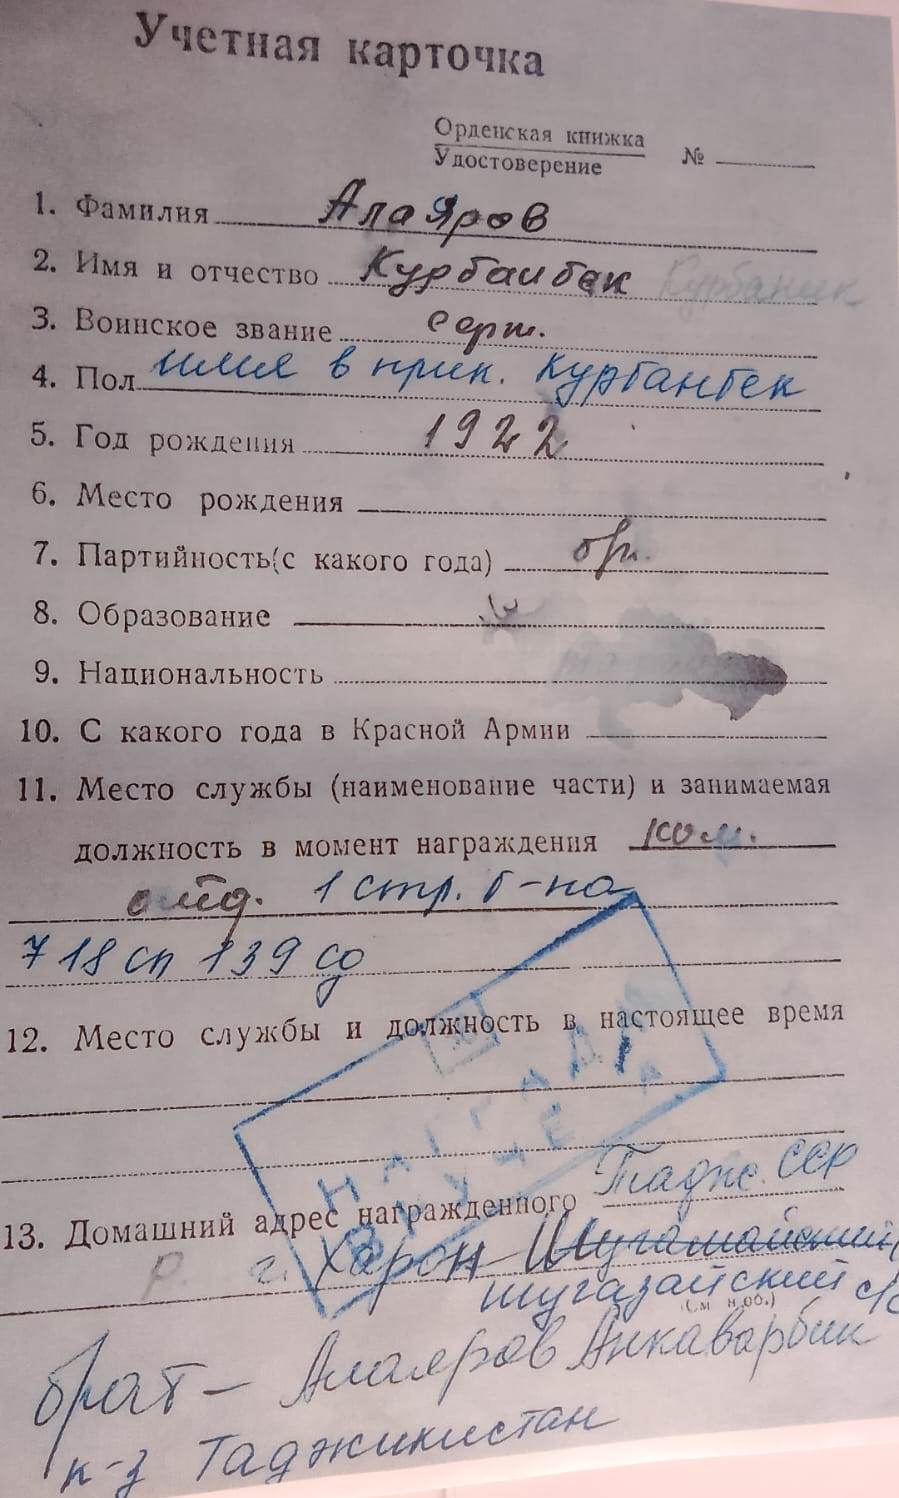 Учетная карточка
Орденская книжка
Удостоверение №
1. Фамилия Алаяров
2. Имя и отчество Курбанбек Курбаник
3. Воинское звание серж.
4. Пол имя в прик. Курбанбек
5. Год рождения 1922
6. Место рождения
7. Партийность(с какого года)
8. Образование
9. Национальность
10. С какого года в Красной Армии
11. Место службы (наименование части) и занимаемая
должность в момент награждения ком.
отд. 1 стр. б-на
718 сп 139 сд
12. Место службы и должность в настоящее время
НАГРАДА
ВРУЧЕНА
13. Домашний адрес награжденного Тадж. ССР
г. Харон
шугазайский с/с
(см н.об.)
брат - Алаяров Анкаварбик
к-з Таджикистан